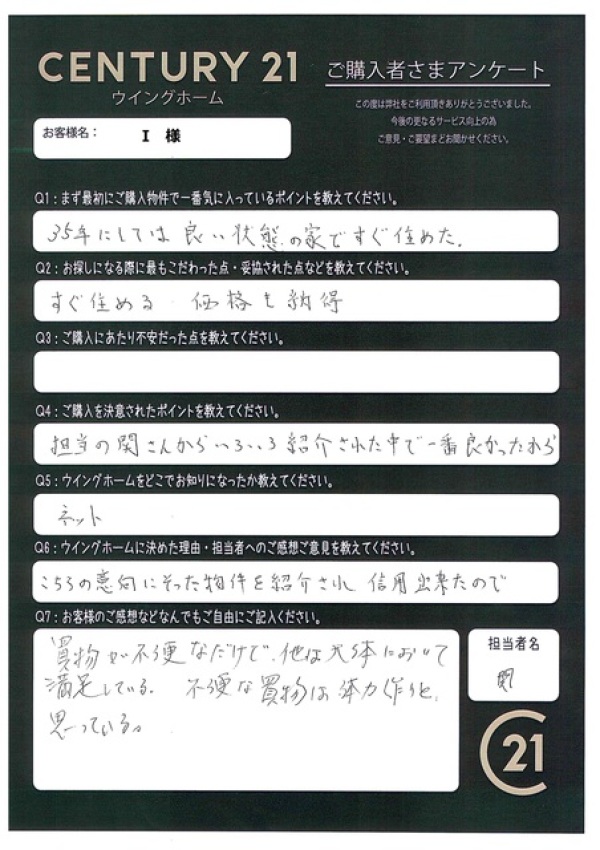 CENTURY 21
ウイングホーム
ご購入者さまアンケート
この度は弊社をご利用頂きありがとうございました。
今後の更なるサービス向上の為
ご意見・ご要望までお聞かせください。
お客様名： I 様
Q1：まず最初にご購入物件で一番気に入っているポイントを教えてください。
35年にしては良い状態の家ですぐ住めた。
Q2：お探しになる際に最もこだわった点・妥協された点などを教えてください。
すぐ住める 価格も納得
Q3：ご購入にあたり不安だった点を教えてください。
Q4：ご購入を決意されたポイントを教えてください。
担当の関さんからいろいろ紹介された中で一番良かったから
Q5：ウイングホームをどこでお知りになったか教えてください。
ネット
Q6：ウイングホームに決めた理由・担当者へのご感想ご意見を教えてください。
こちらの意向にそった物件を紹介され 信用出来たので
Q7：お客様のご感想などなんでもご自由にご記入ください。
買物が不便なだけで、他は大体において
満足している。 不便な買物は体力作りと、
思っている。
担当者名
関
21